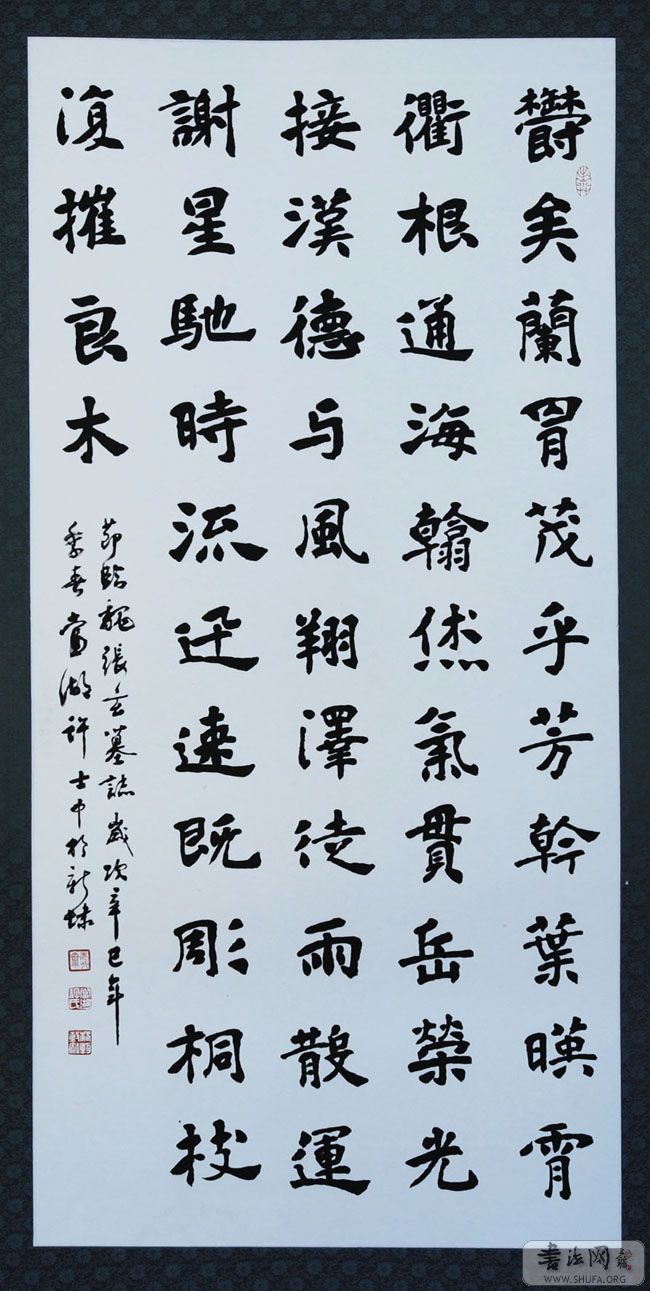 鬱矣蘭胄茂乎芳幹葉暎霄
衢根通海翰烋氣貫岳榮光
接漢德与風翔澤徔雨散運
謝星馳時流迅速既彫桐枝
復摧良木
節臨魏張玄墓誌歲次辛巳年
季春當湖許士中於新埭
書法网
WWW.SHUFA.ORG